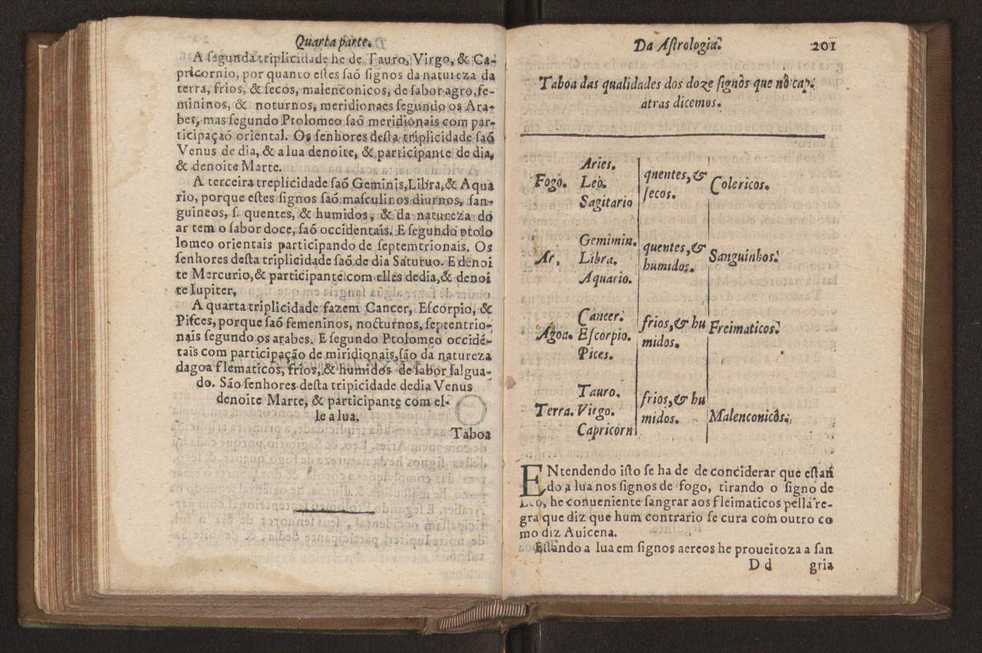 Quarta parte.
A segunda triplicidade he de Tauro, Virgo, & Ca-
pricornio, por quanto estes saõ signos da natureza da
terra, frios, & secos, malenconicos, de sabor agro, fe-
mininos, & noturnos, meridionaes segundo os Ara-
bes, mas segundo Ptolomeo saõ meridionais com par-
ticipaçaõ oriental. Os senhores desta triplicidade saõ
Venus de dia, & a lua denoite, & participante de dia,
& denoite Marte.
A terceira treplicidade saõ Geminis, Libra, & Aqua
rio, porque estes signos saõ masculinos diurnos, san-
guineos, s. quentes, & humidos, & da natureza do
ar tem o sabor doce, saõ occidentais. E segundo ptolo
lomeo orientais participando de septemtrionais. Os
senhores desta triplicidade saõ de dia Saturuo. E denoi
te Mercurio, & participante com elles dedia, & denoi
te Iupiter,
A quarta triplicidade fazem Cancer, Escorpio, &
Pisces, porque saõ femeninos, nocturnos, septentrio-
nais segundo os arabes. E segundo Ptolomeo occidẽ-
tais com participação de miridionais, são da natureza
dagoa flematicos, frios, & humidos de sabor salgua-
do. São senhores desta tripicidade dedia Venus
denoite Marte, & participante com el-
le a lua.
Taboa
Da Astrologia. 201
Taboa das qualidades dos doze signos que nò capi
atras dicemos.
Fogo. Aries. Leo. Sagitario quentes, & secos. Colericos.
Ar. Gemimin. Libra. Aquario. quentes, & humidos. Sanguinhos.
Agoa. Cancer. Escorpio. Pices. frios, & hu midos. Freimaticos.
Terra. Tauro. Virgo. Capricorn frios, & hu midos. Malenconicos.
ENtendendo isto se ha de de conciderar que estan
do a lua nos signos de fogo, tirando o signo de
Leo, he conueniente sangrar aos fleimaticos pella re-
gra que diz que hum contrario se cura com outro co
mo diz Auicena.
Estando a lua em signos aereos he proueitoza a san
D d gria